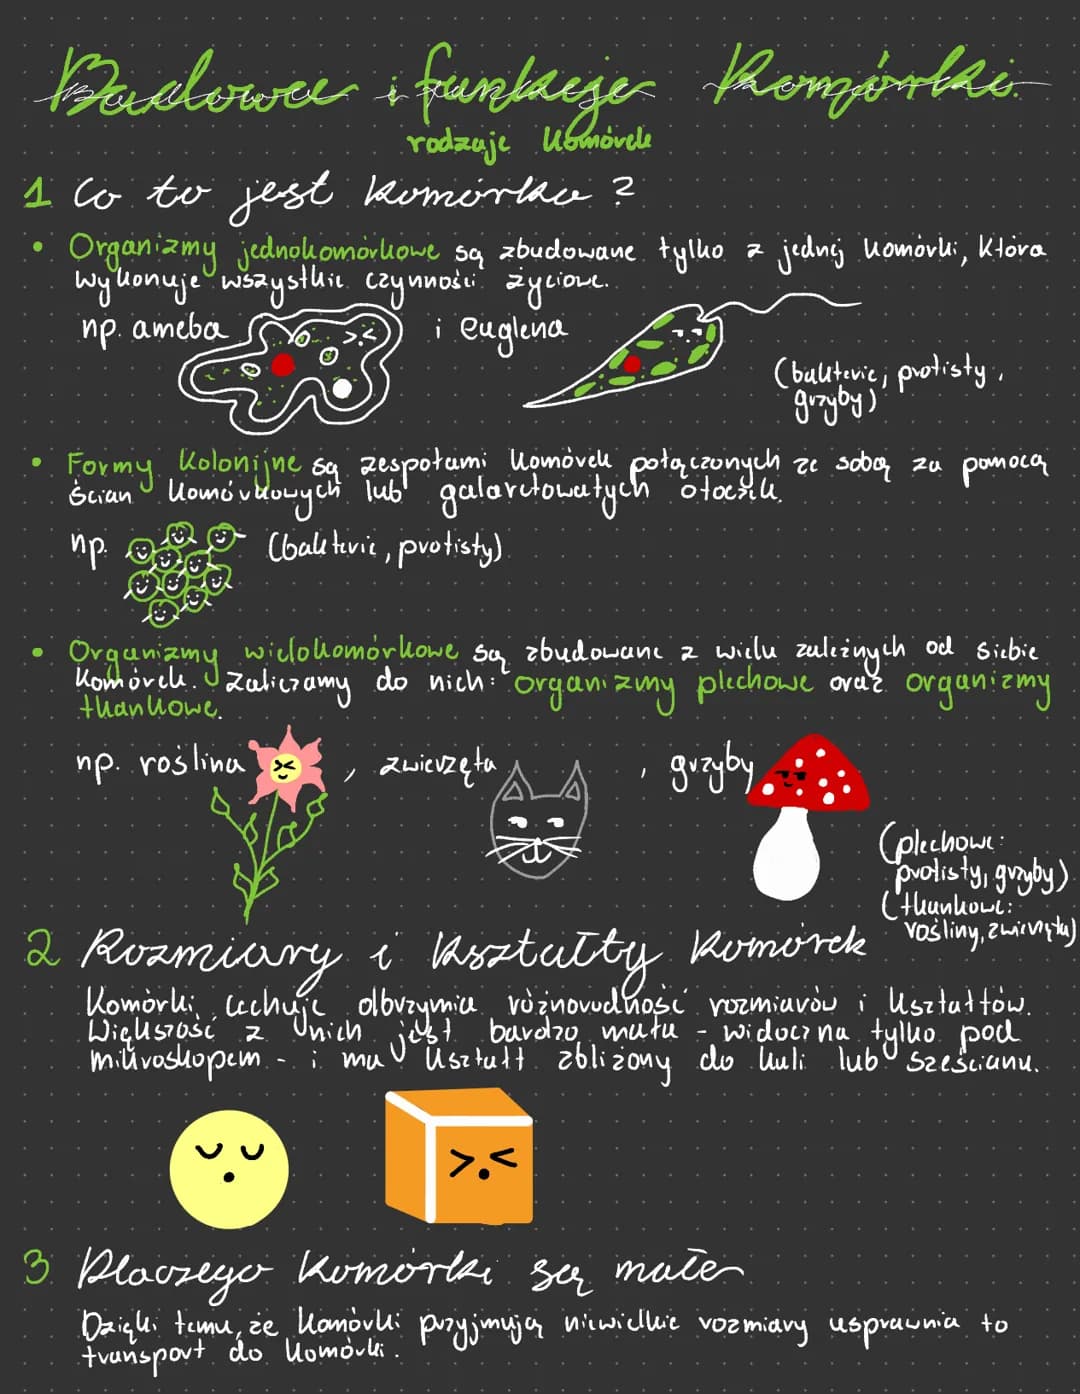 Budowa i funkcje komórki.
rodzaje komórek
1 Co to jest komórka?
• Organizmy jednokomórkowe są zbudowane tylko z jednej komórki, która
wykonuje wszystkie czynności życiowe.
np. ameba i euglena
(bakterie, protisty,
grzyby)
• Formy kolonijne są zespołami komórek połączonych ze sobą za pomocą
ścian komórkowych lub galaretowatych otoczek.
np. (bakterie, protisty)
• Organizmy wielokomórkowe są zbudowane z wielu zależnych od siebie
komórek. Zaliczamy do nich: organizmy plechowe oraz organizmy
tkankowe.
np. roślina, zwierzęta, grzyby
(plechowe:
protisty, grzyby)
(tkankowe:
rośliny, zwierzęta)
2 Rozmiary i kształty komórek
Komórki cechuje olbrzymia różnorodność rozmiarów i kształtów.
Większość z nich jest bardzo mała - widoczna tylko pod
mikroskopem - i ma kształt zbliżony do kuli lub sześcianu.
3 Dlaczego komórki są małe
Dzięki temu, że komórki przyjmują niewielkie rozmiary usprawnia to
transport do komórki.